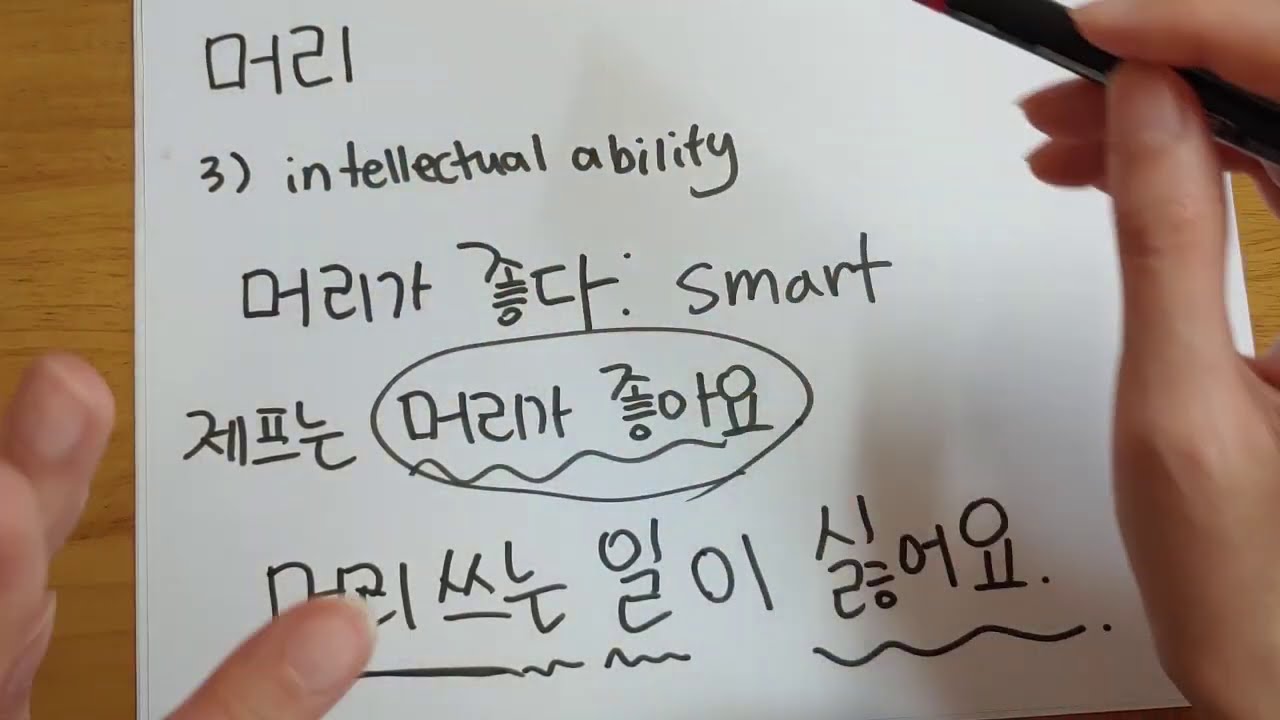 머리
3) intellectual ability
머리가 좋다: smart
제프는 머리가 좋아요
머리 쓰는 일이 싫어요.